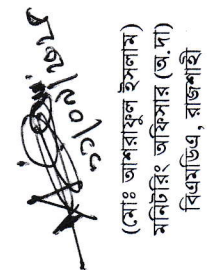 (মোঃ আশরাফুল ইসলাম)
মনিটরিং অফিসার (অ.দা)
বিএমডিএ, রাজশাহী